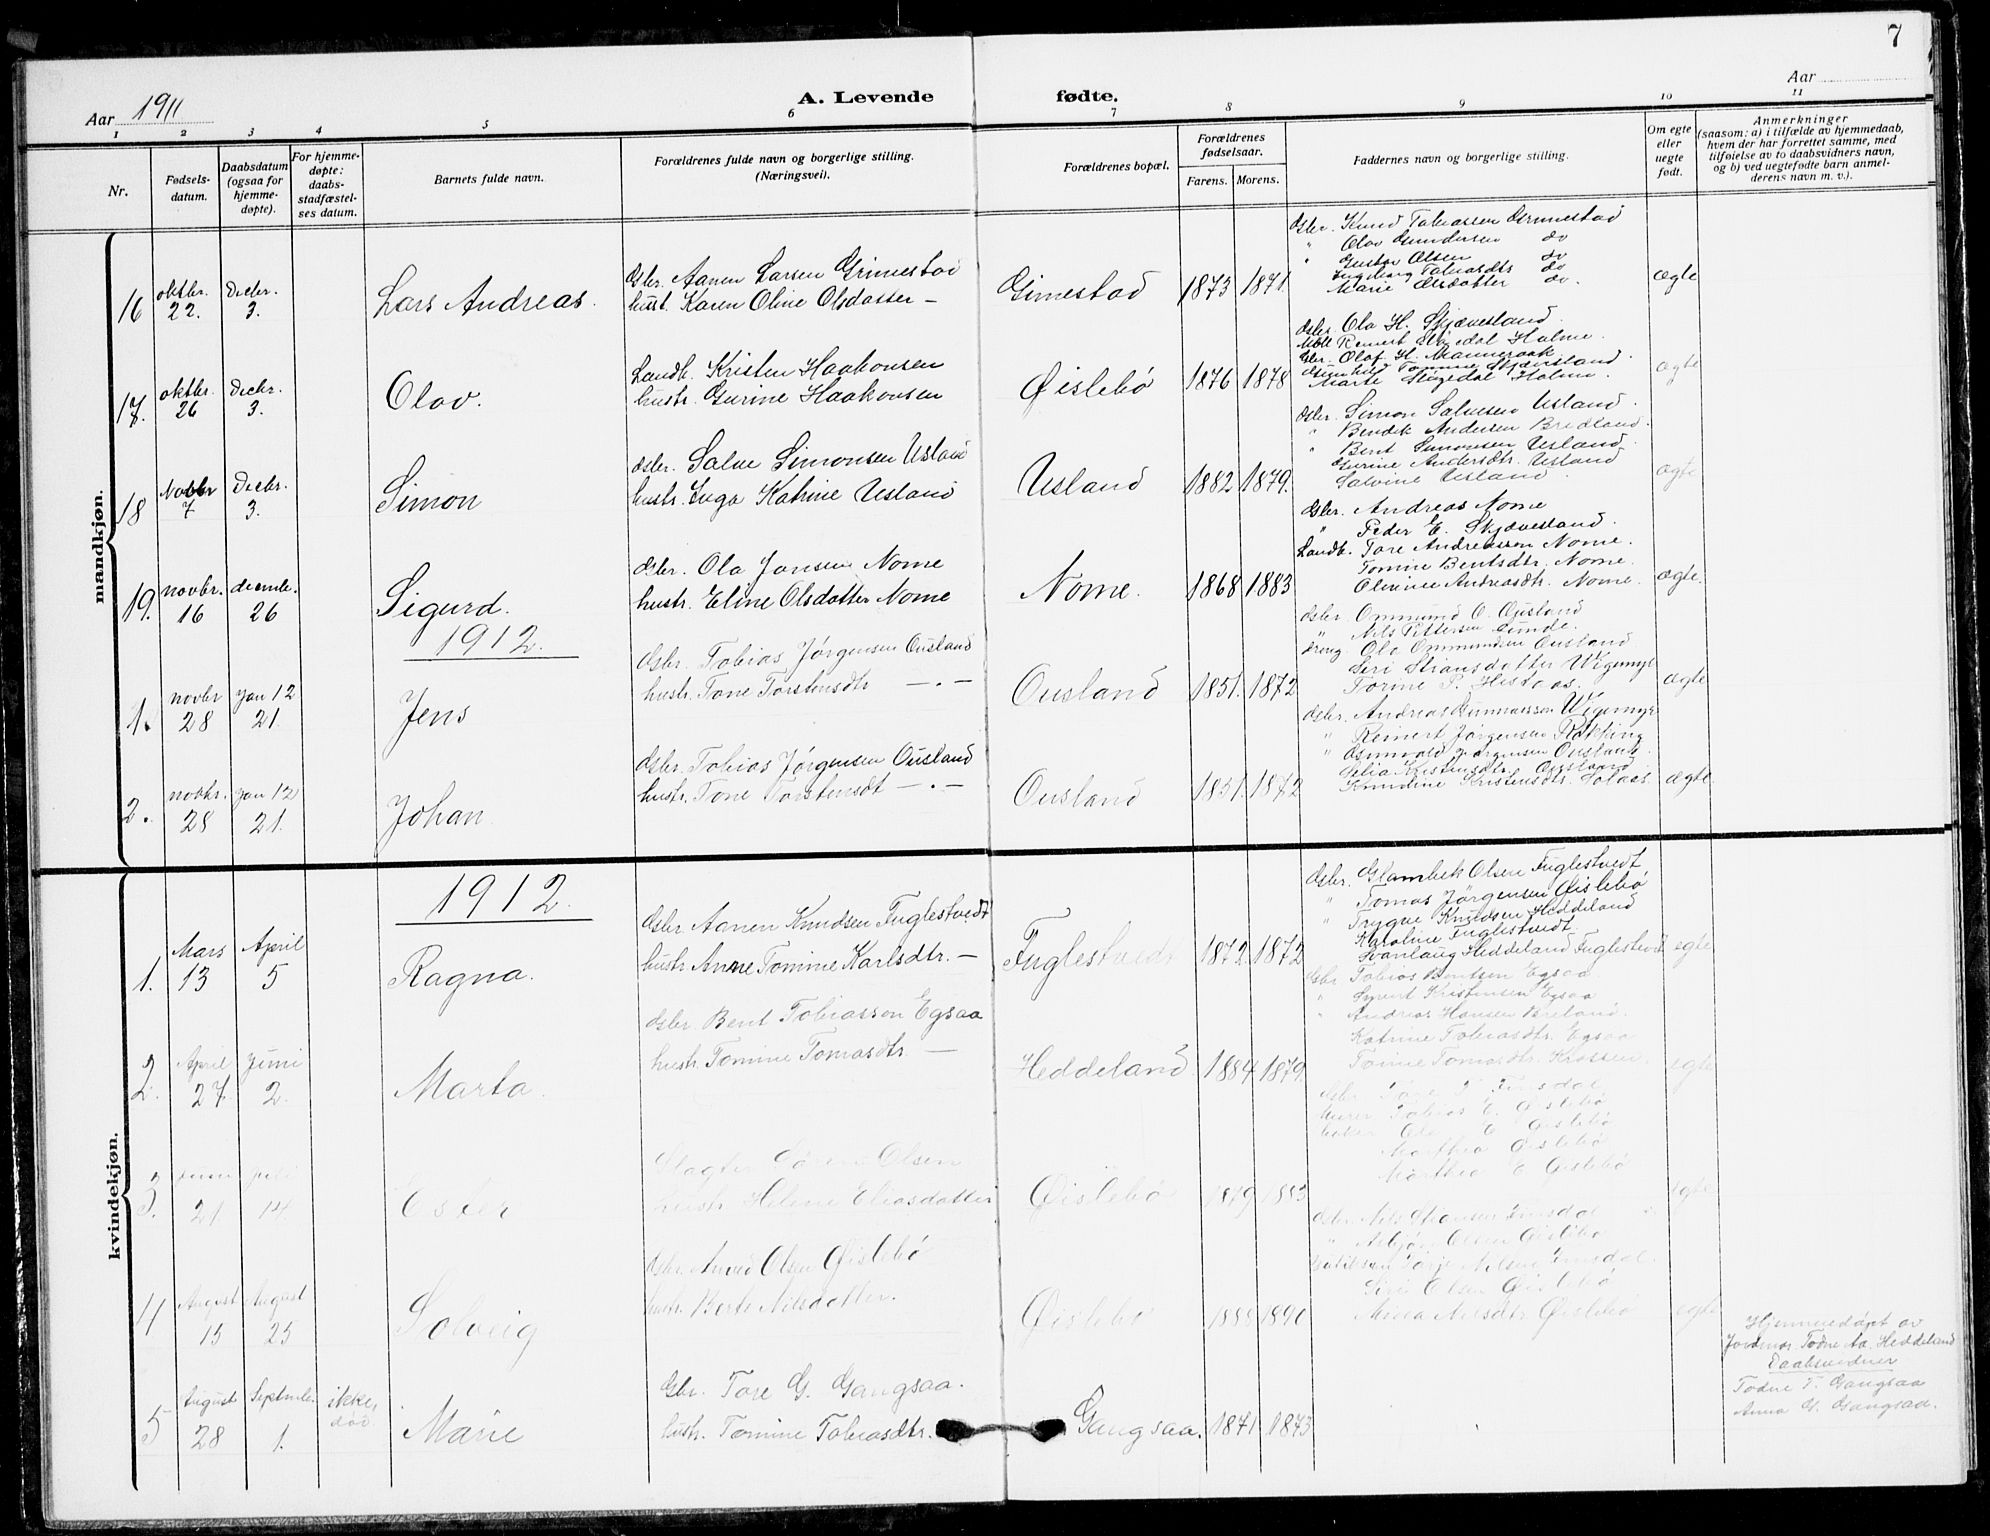 7
Aar 1911
A. Levende fødte.
Aar
1 2 3 4 5 6 7 8 9 10 11
Nr.
Fødsels-
datum.
Daabsdatum
(ogsaa for
hjemme-
døpte).
For hjemme-
døpte:
daabs-
stadfæstel-
ses datum.
Barnets fulde navn.
Forældrenes fulde navn og borgerlige stilling.
(Næringsvei).
Forældrenes bopæl.
Forældrenes
fødselsaar.
Farens. Morens.
Faddernes navn og borgerlige stilling.
Om egte
eller
uegte
født.
Anmerkninger
(saasom: a) i tilfælde av hjemmedaab,
hvem der har forrettet samme, med
tilføielse av to daabsvidners navn,
og b) ved uegtefødte barn anmel-
derens navn m. v.).
mandkjøn.
16 oktbr. 22. Decbr. 3.
Lars Andreas.
Gsbr. Aanen Larsen Grimestad
hust. Karen Oline Olsdatter —
Gimestad 1873 1871
Gsbr. Knud Tobiassen
" Olav Gundersen do
" Gustav Olsen do
Ingeborg Tobiasdtr do
Marie Olsdatter do.
ægte
17. oktbr. 26 Decbr. 3.
Olav.
Landh. Kristen Haakonsen
hustr. Gurine Haakonsen
Øislebö 1876 1878
Gsbr. Ola H. Skjævesland.
Holme.
Gbr. Olaf H. Manneraak
Marte Stigedal Holme.
ægte
18 Novbr 7 Decbr. 3.
Simon
Gsbr. Salve Simonsen Usland
hustr. Inga Katrine Usland
Usland 1882 1879.
Gsbr. Simon Salvesen Usland.
" Bendik Andersen Bredland.
" Bent Simonsen Usland.
Gurine Andersdtr. Usland
Salvine Usland.
ægte
19. novbr. 16 decmbr. 26
Sigurd.
Gsbr. Ola Jansen Nome
hustr. Eline Olsdatter Nome
Nome. 1868 1883
Gsbr. Andreas Nome
" Peder E. Skjævesland.
Landh. Tore Andreassen Nome.
Tomine Bentsdtr. Nome.
Andreasdtr. Nome.
ægte.
1912.
1. novbr 28 Jan 12 21.
Jens
Gsbr. Tobias Jørgensen Ousland
hustr. Tone Torstensdtr — . —
Ousland 1851. 1872
Gsbr. Ommund O. Ousland
" Nils Pettersen Sunde.
dreng. Ola Ommundsen Ousland
Siri Stiansdatter Wigemyr
Torine P. Hestaas.
ægte
2. novbr. 28 Jan 12 21.
Johan
Gsbr. Tobias Jørgensen Ousland
hustr. Tone Torstensdt — . —
Ousland 1851. 1872
Gsbr. Andreas Gunnarsen Wigemyr
" Reinert Jørgensen Røkking
" Osmund Jørgensen Ousland.
Kristensdtr. Ousland
Knudine Kristensdtr.
ægte
kvindekjøn.
1912.
1. Mars 13 April 5
Ragna.
Gsbr Aanen Knudsen Fuglestvedt
hustr. Anne Tomine Karlsdtr. —
Fuglestvedt 1872 1872
Gsbr. Glambek Olsen Fuglestvedt
" Tomas Jørgensen Øislebö
" Trygve Knudsen Heddeland
Karoline Fuglestvedt.
Svanlaug Heddeland Fuglestvedt
egte
2. April 27 Juni 2.
Marta.
Gsbr. Bent Tobiassen Egsaa
hustr Tomine Tomasdtr. —
Heddeland. 1884 1879.
Gsbr Tobias Bentsen Egsaa.
" Syvert Kristensen Egsaa
" Andreas Hansen Breland.
Katrine Tobiasdtr Egsaa
Tomine Tomasdtr. Krossen.
egte
3. 21 juli 14.
Ester
Slagter Søren Olsen
hustr Helene Eliasdatter
Øislebö 1879 1883
Tobias E. Øislebö
Øislebö
Marthea Øislebö
Marthea E Øislebö
egte
4 August 15 August 25
Solveig
Gsbr. Olsen Øislebö
hustr. Berte Nilsdatter.
Øislebö 1888 1890
Gsbr. Nils Stiansen
" Asbjørn Olsen Øislebö
Nilsen
Siri Olsen Øislebö
Nilsdtr Øislebö
egte
5 August 28 September 1. ikke, død.
Marie
Gbr. Tore G. Gangsaa.
hustr. Tomine Tobiasdtr.
Gangsaa. 1871 1873
Hjemmedøpt av
Jordmor Todne Aa. Heddeland
Daabsvidner
Todne T. Gangsaa
Anna G. Gangsaa.